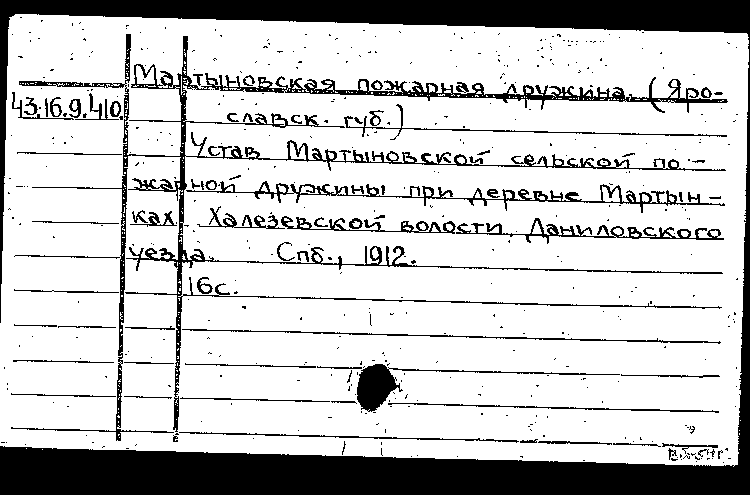 Мартыновская пожарная дружина. (Яро-
43.16.9.410
славск. губ.)
Устав Мартыновской сельской по-
жарной дружины при деревне Мартын-
ках Халезевской волости, Даниловского
уезда. Спб., 1912.
16с.